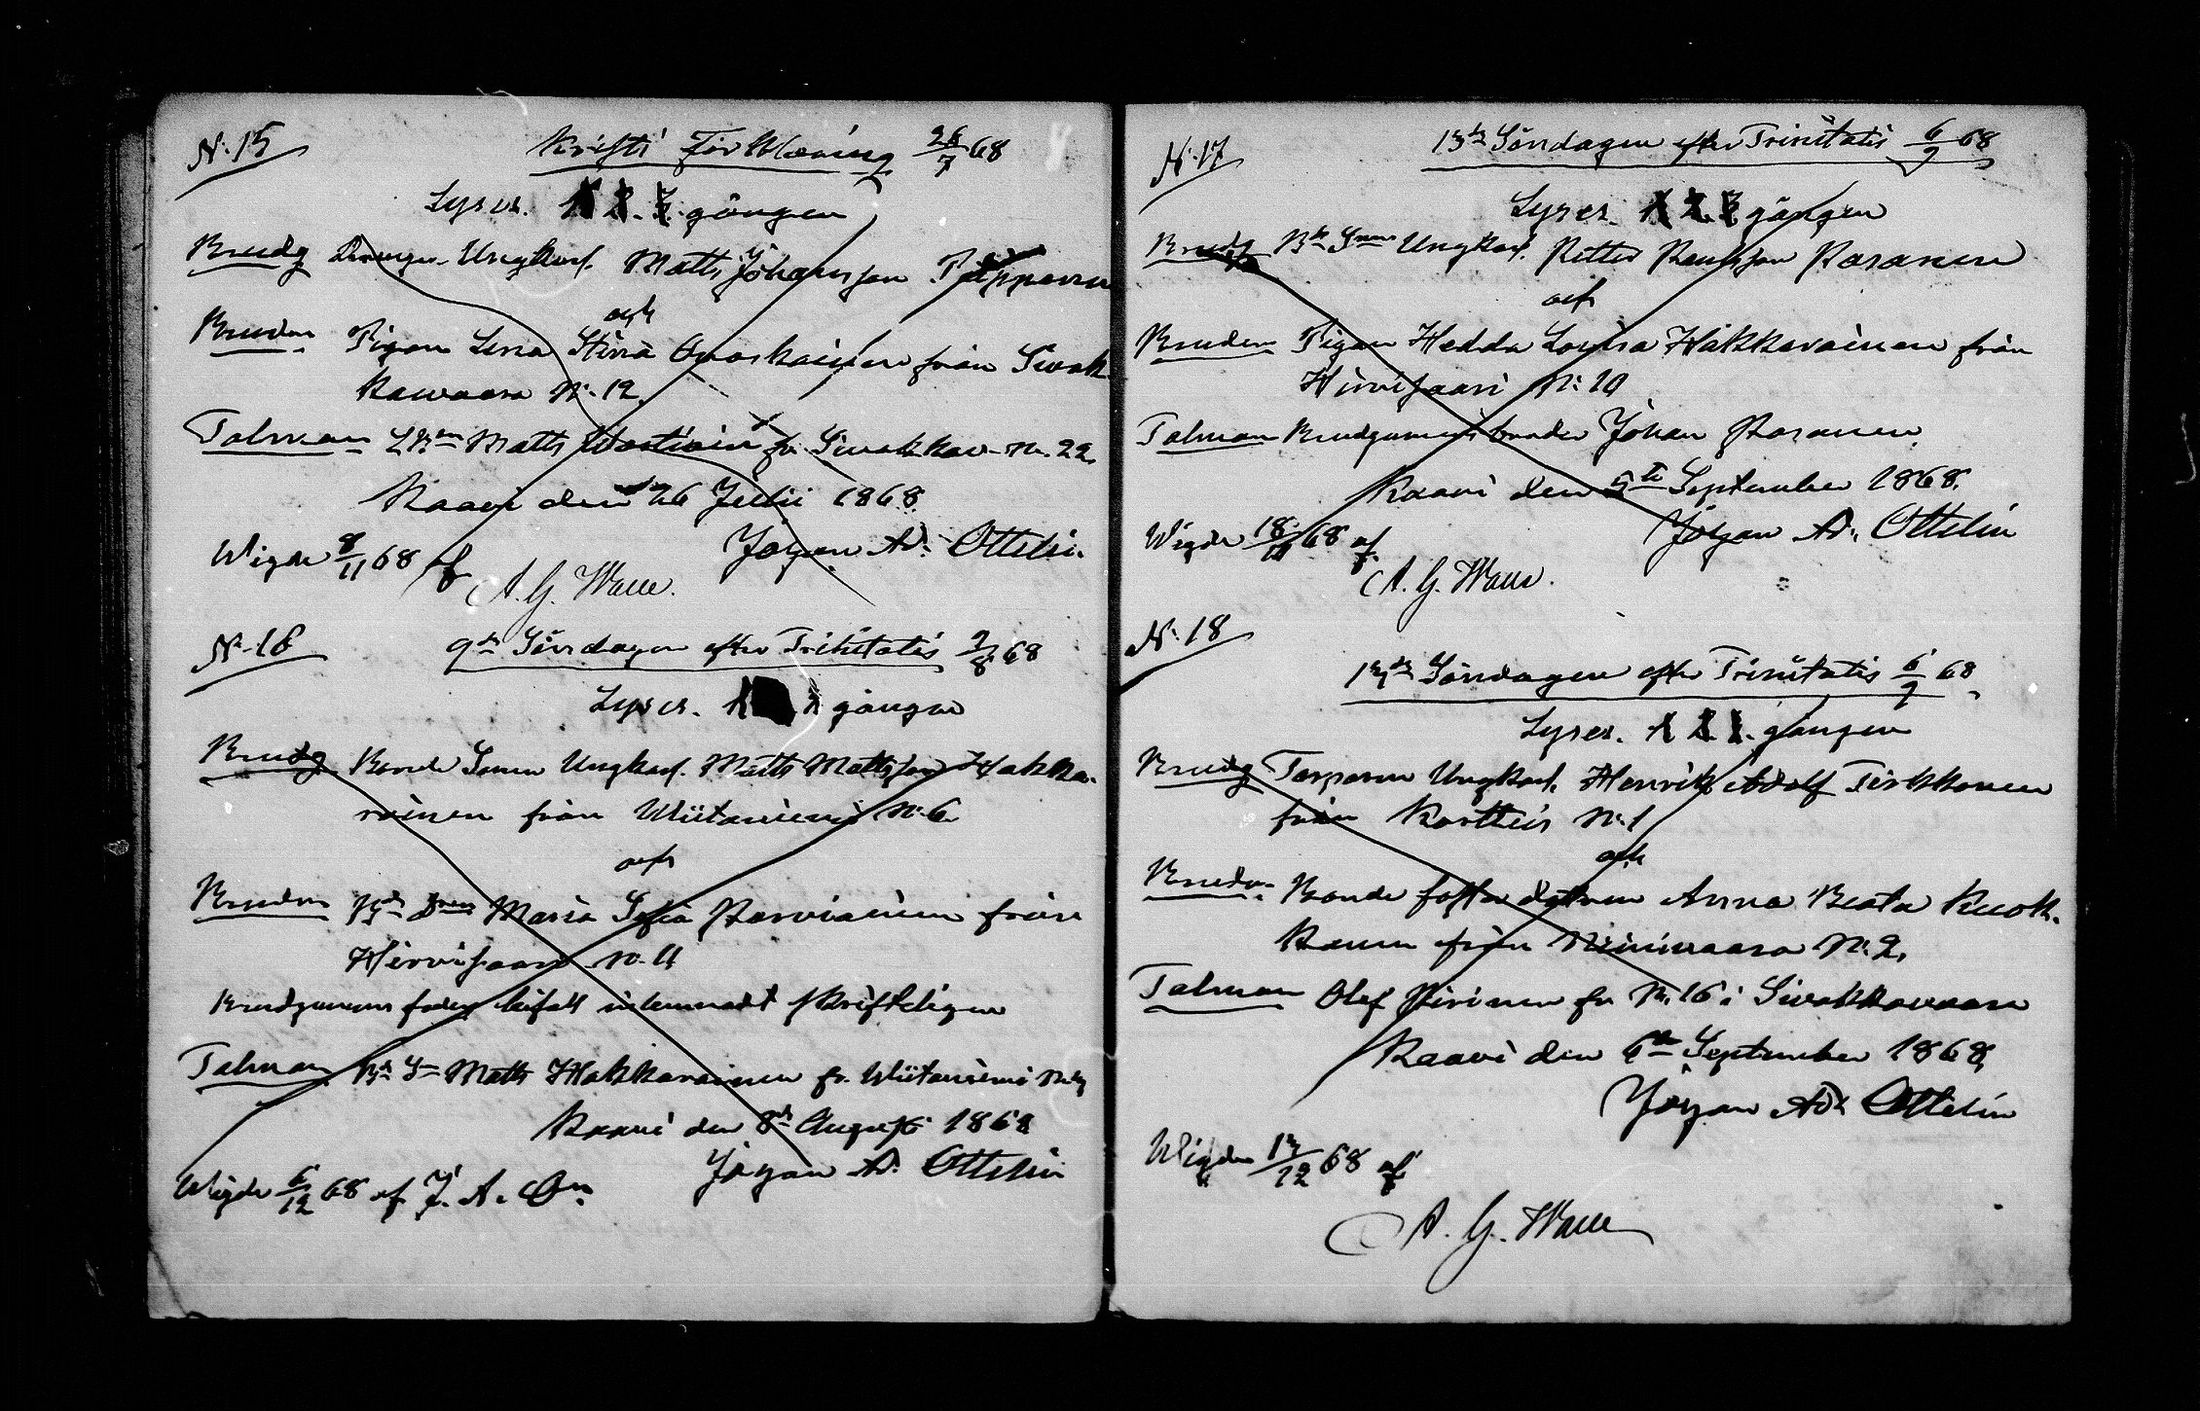 N:15 Kristi Förklaring 26/7 68
Lyses. 1. 2. 3. gången
Brudg Drängen Ungkarl. Matts Johansson Pippon
och
Bruden Pigan Lena Stina Onoskainen från Siwak-
kawaara N:12.
Talman Matts från Siwakkav. N:22.
Kaavi den 26 Julii 1868.
Wigde 8/11 68 af Johan Ad: Ottelin.
A. G. Walle.
N:16 9de Söndagen efter Trinitatis 9/8 68
Lyses. 1. 3 gången
Brudg Bonde Sonen Ungkarl. Matts Mattsson Hakka-
rainen från Wiitaniemi N:6
och
Bruden Maria Sofia Parviainen från
Hirvisaari N:11
Brudgummens faders bifall inlemnadt skrifteligen
Talman Bd Sn Matts Hakkarainen fr. Wiitaniemi
Kaavi den 8de Augusti 1868
Johan A: Ottelin
Wigde 6/12 68 af J. A. On
N:17 13de Söndagen efter Trinitatis 6/9 68
Lyses. 1. 2. 3 gången
Brudg Bde Sonen Ungkarl. Petter Paulsson Pasanen
och
Bruden Pigan Hedda Lovisa Hakkarainen från
Hirvisaari N:10
Talman Brudgummens broder Johan Pasanen.
Kaavi den 5te September 1868.
Wigde 18/10 68 af Johan Ad: Ottelin
A. G. Walle.
N:18
13de Söndagen efter Trinitatis 6/9 68
Lyses. 1. 2. 3. gången
Brudg Torparen Ungkarl. Henrik Adolf Tirkkonen
från Kortteis N:1
och
Bruden Bonde fosterdottren Anna Beata Ruok-
Kanen från Niinivaara N:2.
Talman Olof Piirinen fr N:16 i Siwakkavaara
Kaavi den 6te September 1868
Johan Ad: Ottelin
Wigde 13/12 68 af
A. G. Walle